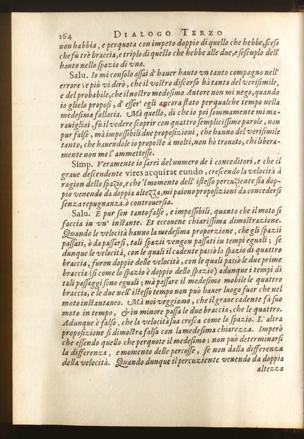 164 DIALOGO TERZO
non habbia, e perquota con impeto doppio di quello che hebbe, sceso
che fù trè braccia, e triplo di quello che hebbe alle due, e sestuplo dell'
hauto nello spazio di vno.
Salu. Io mi consolo assai d'hauer hauto vn tanto compagno nell'
errore: e più vi dirò, che il vostro discorso hà tanto del verisimile,
e del probabile, che il nostro medesimo Autore non mi negò, quando
io glielo proposi, d'esser' egli ancora stato per qualche tempo nella
medesima fallacia. Mà quello, di che io poi sommamente mi ma-
rauigliai, fù il vedere scoprir con quattro semplicissime parole, non
pur false, mà impossibili due proposizioni, che hanno del verisimile
tanto, che hauendole io proposte à molti, non hò trouato, chi libera-
mente non me l'ammettesse.
Simp. Veramente io sarei del numero de i conceditori, e che il
graue descendente vires acquirat eundo, crescendo la velocità à
ragion dello spazio, e che 'l momento dell'istesso percuziente sia dop-
pio venendo da doppia altezza, mi paiono proposizioni da concedersi
senza repugnanza, ò controuersia.
Salu. E pur son tanto false, e impossibili, quanto che il moto si
faccia in vn' instante. Et eccouene chiarissima dimostrazione.
Quando le velocità hanno la medesima proporzione, che gli spazii
passati, ò da passarsi, tali spazii vengon passati in tempi eguali; se
dunque le velocità, con le quali il cadente passò lo spazio di quattro
braccia, furon doppie delle velocità, con le quali passò le due prime
braccia (si come lo spazio è doppio dello spazio) adunque i tempi di
tali passaggi sono eguali; mà passare il medesimo mobile le quattro
braccia, e le due nell'istesso tempo non può hauer luogo fuor che nel
moto instantaneo. Mà noi veggiamo, che il graue cadente fà suo
moto in tempo, & in minore passa le due braccia, che le quattro.
Adunque è falso, che la velocità sua cresca come lo spazio. L'altra
proposizione si dimostra falsa con la medesima chiarezza. Imperò
che essendo quello che perquote il medesimo; non può determinarsi
la differenza, e momento delle percosse, se non dalla differenza
della velocità. Quando dunque il percuziente venendo da doppia
altezza